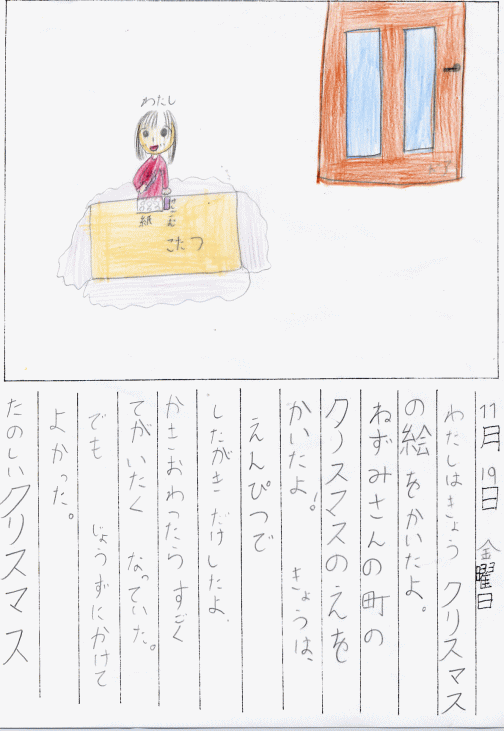 わたし
紙
こたつ
11月19日 金曜日
わたしはきょう クリスマス
の絵をかいたよ。
ねずみさんの町の
クリスマスのえを
かいたよ! きょうは、
えんぴつで
したがきだけしたよ.
かきおわったらすごく
てがいたく なっていた。
でも じょうずにかけて
よかった。
たのしいクリスマス